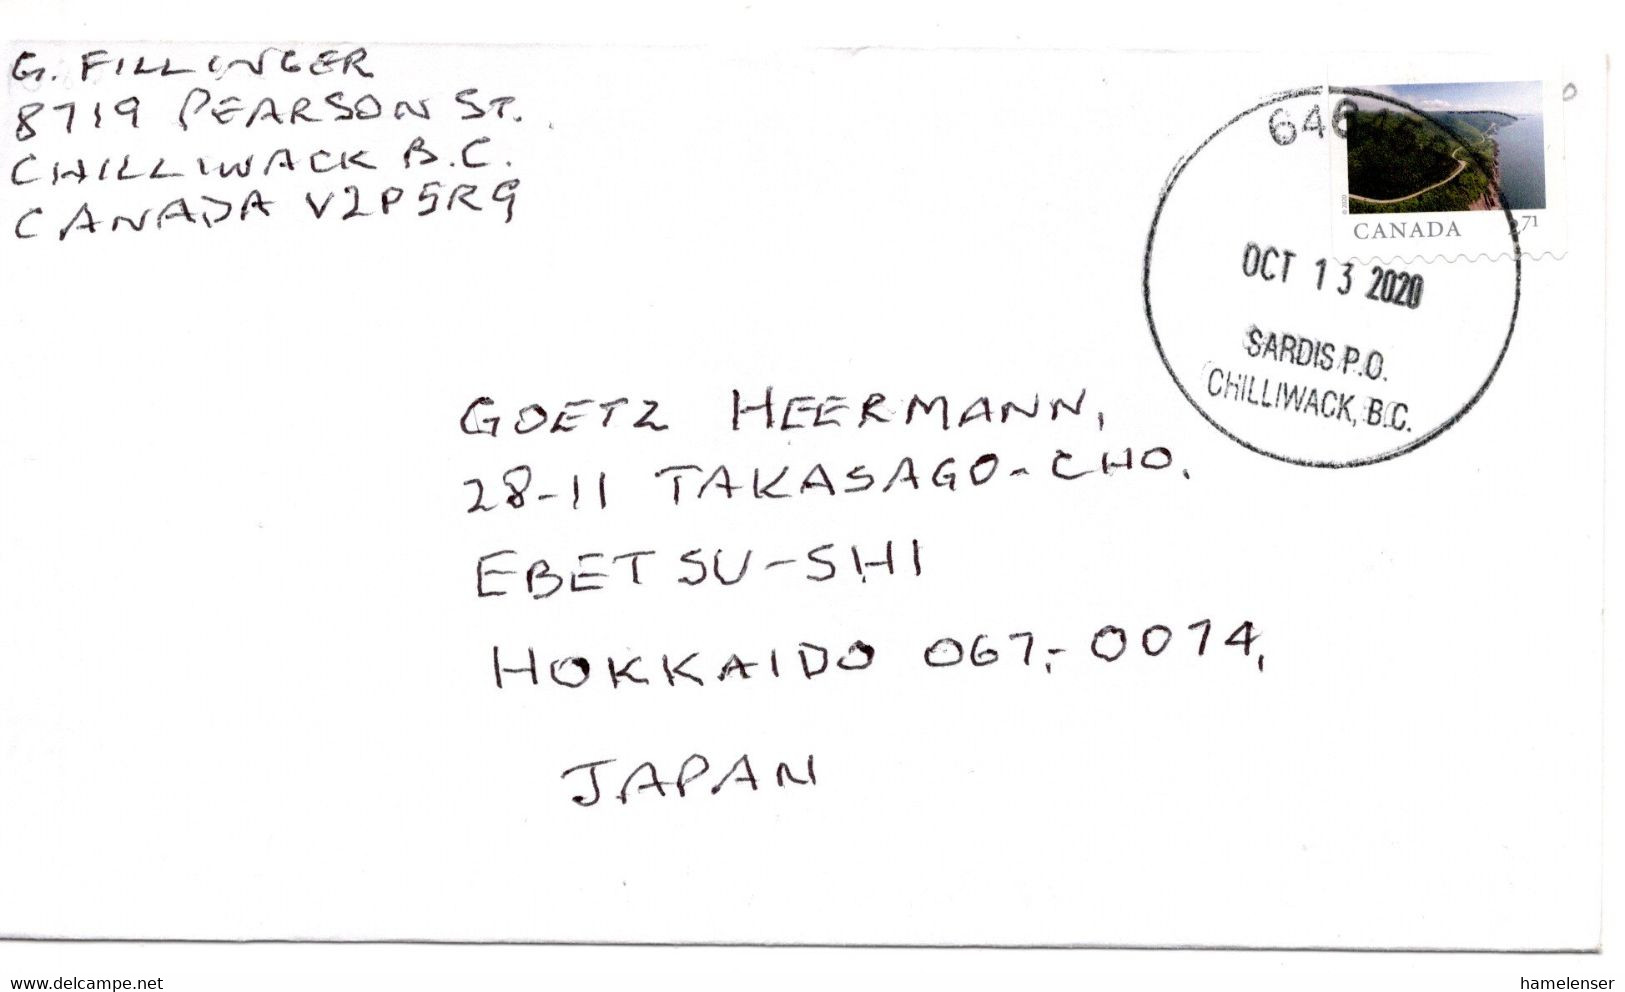 G. FILLINGER
8719 PEARSON ST.
CHILLIWACK B.C.
CANADA V2P5R9
© 2020
CANADA 271
OCT 13 2020
SARDIS P.O.
CHILLIWACK, B.C.
GOETZ HEERMANN,
28-11 TAKASAGO-CHO.
EBETSU-SHI
HOKKAIDO 067,-0074,
JAPAN
www.delcampe.net
hamelenser